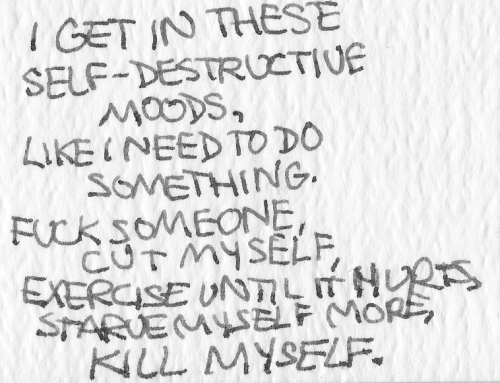 I GET IN THESE
SELF-DESTRUCTIVE
MOODS,
LIKE I NEED TO DO
SOMETHING.
FUCK SOMEONE,
CUT MYSELF,
EXERCISE UNTIL IT HURTS,
STARVE MYSELF MORE,
KILL MYSELF.